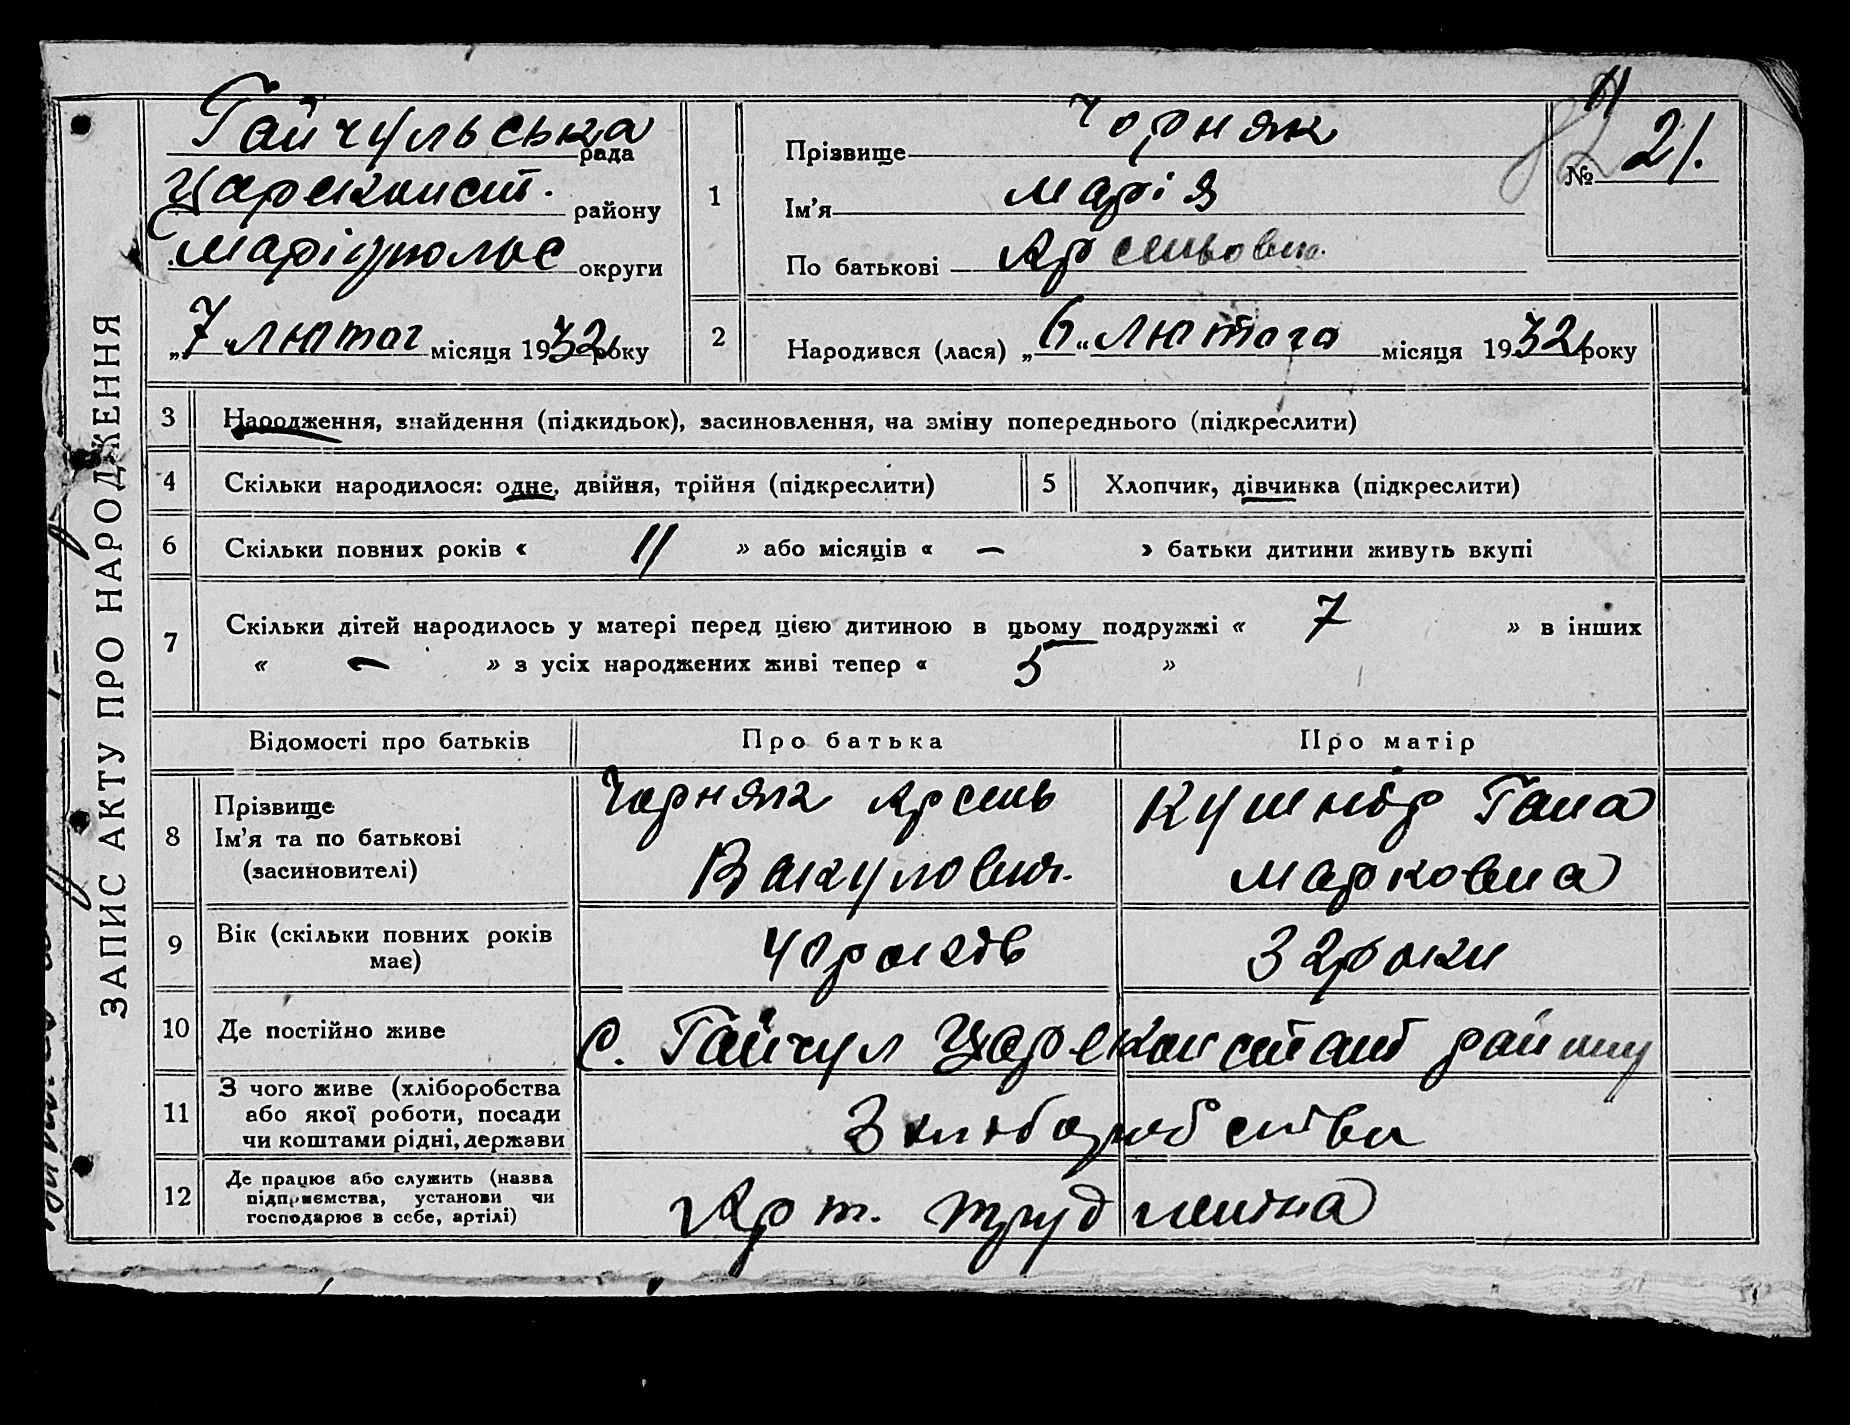 ЗАПИС АКТУ ПРО НАРОДЖЕННЯ
Гайчульська рада
Царекконст. району
Маріупольс округи
„7" лютог місяця 1932 року
1
Прізвище Чорняк
Ім'я Марія
По батькові Арсеньовна
82
11
№ 21.
2
Народився (лася) „6" лютого місяця 1932 року
3 Народження, знайдення (підкидьок), засиновлення, на зміну попереднього (підкреслити)
4 Скільки народилося: одне, двійня, трійня (підкреслити)
5 Хлопчик, дівчинка (підкреслити)
6 Скільки повних років « 11 » або місяців « — » батьки дитини живуть вкупі
7 Скільки дітей народилось у матері перед цією дитиною в цьому подружжі « 7 » в інших
« — » з усіх народжених живі тепер « 5 »
Відомості про батьків
Про батька
Про матір
8 Прізвище
Ім'я та по батькові
(засиновителі)
Чорняк Арсень
Вакулович.
Кушнір Гана
Марковна
9 Вік (скільки повних років
має)
40 років
32 роки
10 Де постійно живе
С. Гайчул Царекконстант району
11 З чого живе (хліборобства
або якої роботи, посади
чи коштами рідні, держави
З хліборобства
12 Де працює або служить (назва
підприємства, установи чи
господарює в себе, артілі)
Арт. труд Леніна